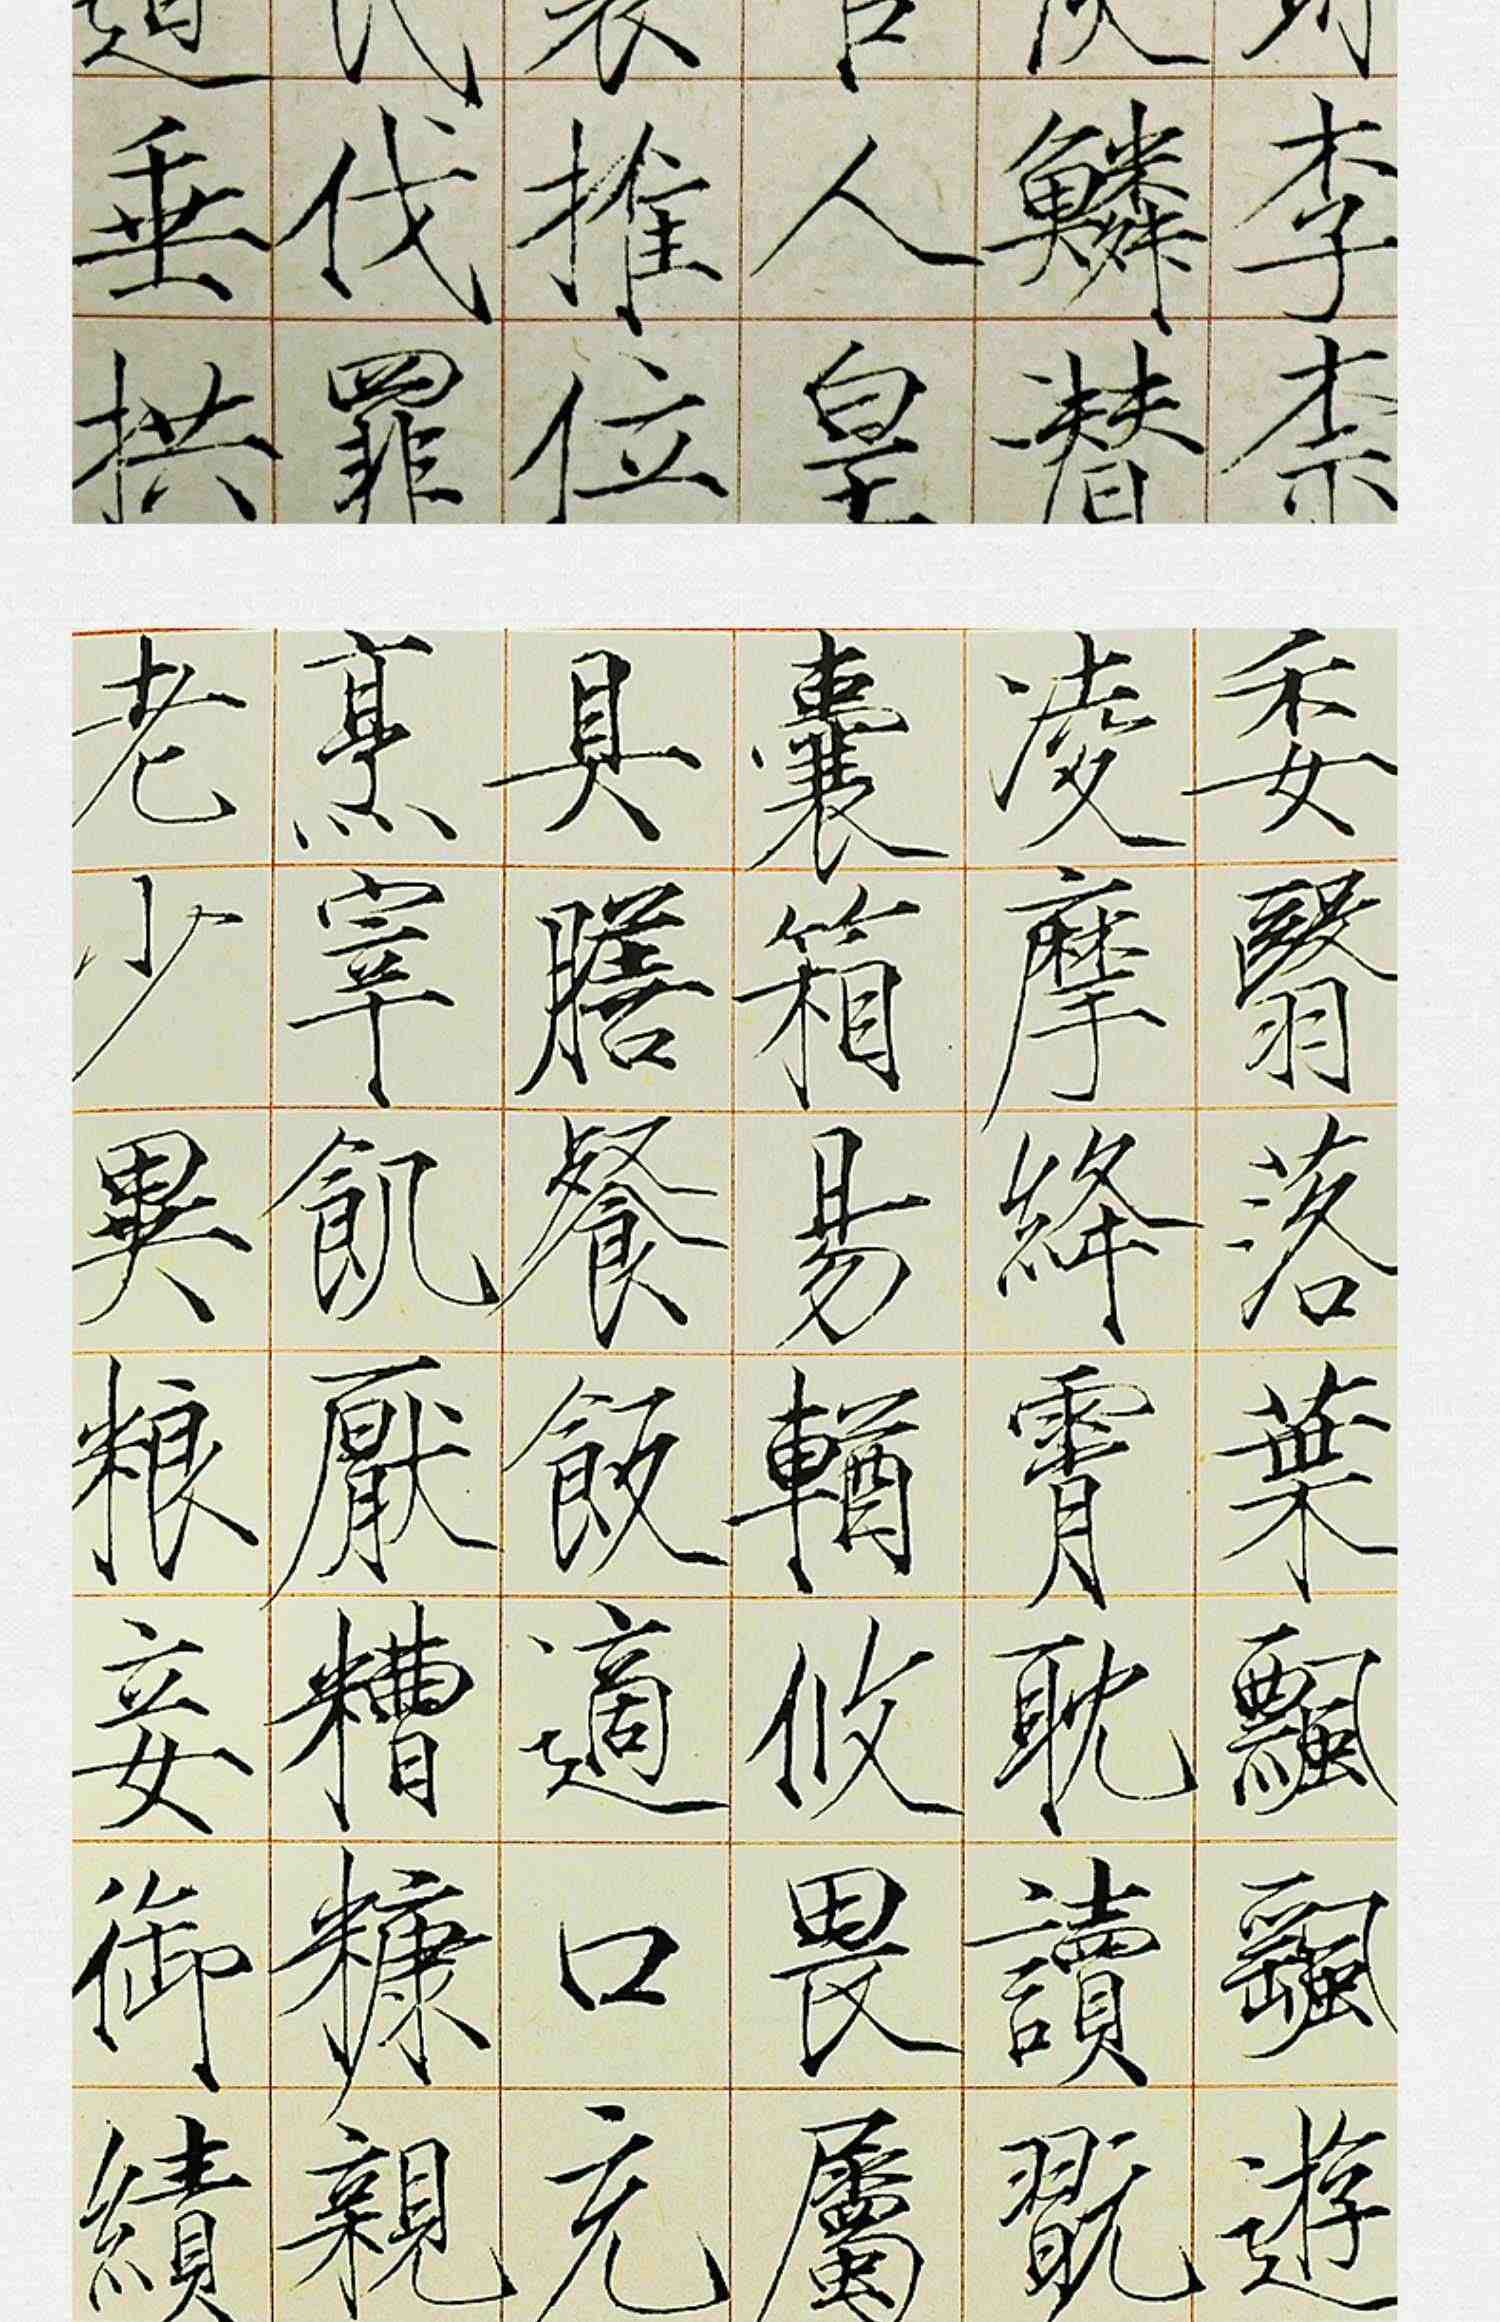 李柰
鱗潜
人皇
推位
伐罪
垂拱
委翳落葉飄颻遊
凌摩絳霄耽讀翫
囊箱易輶攸畏屬
具膳餐飯適口充
烹宰飢厭糟糠親
老少異粮妾御績